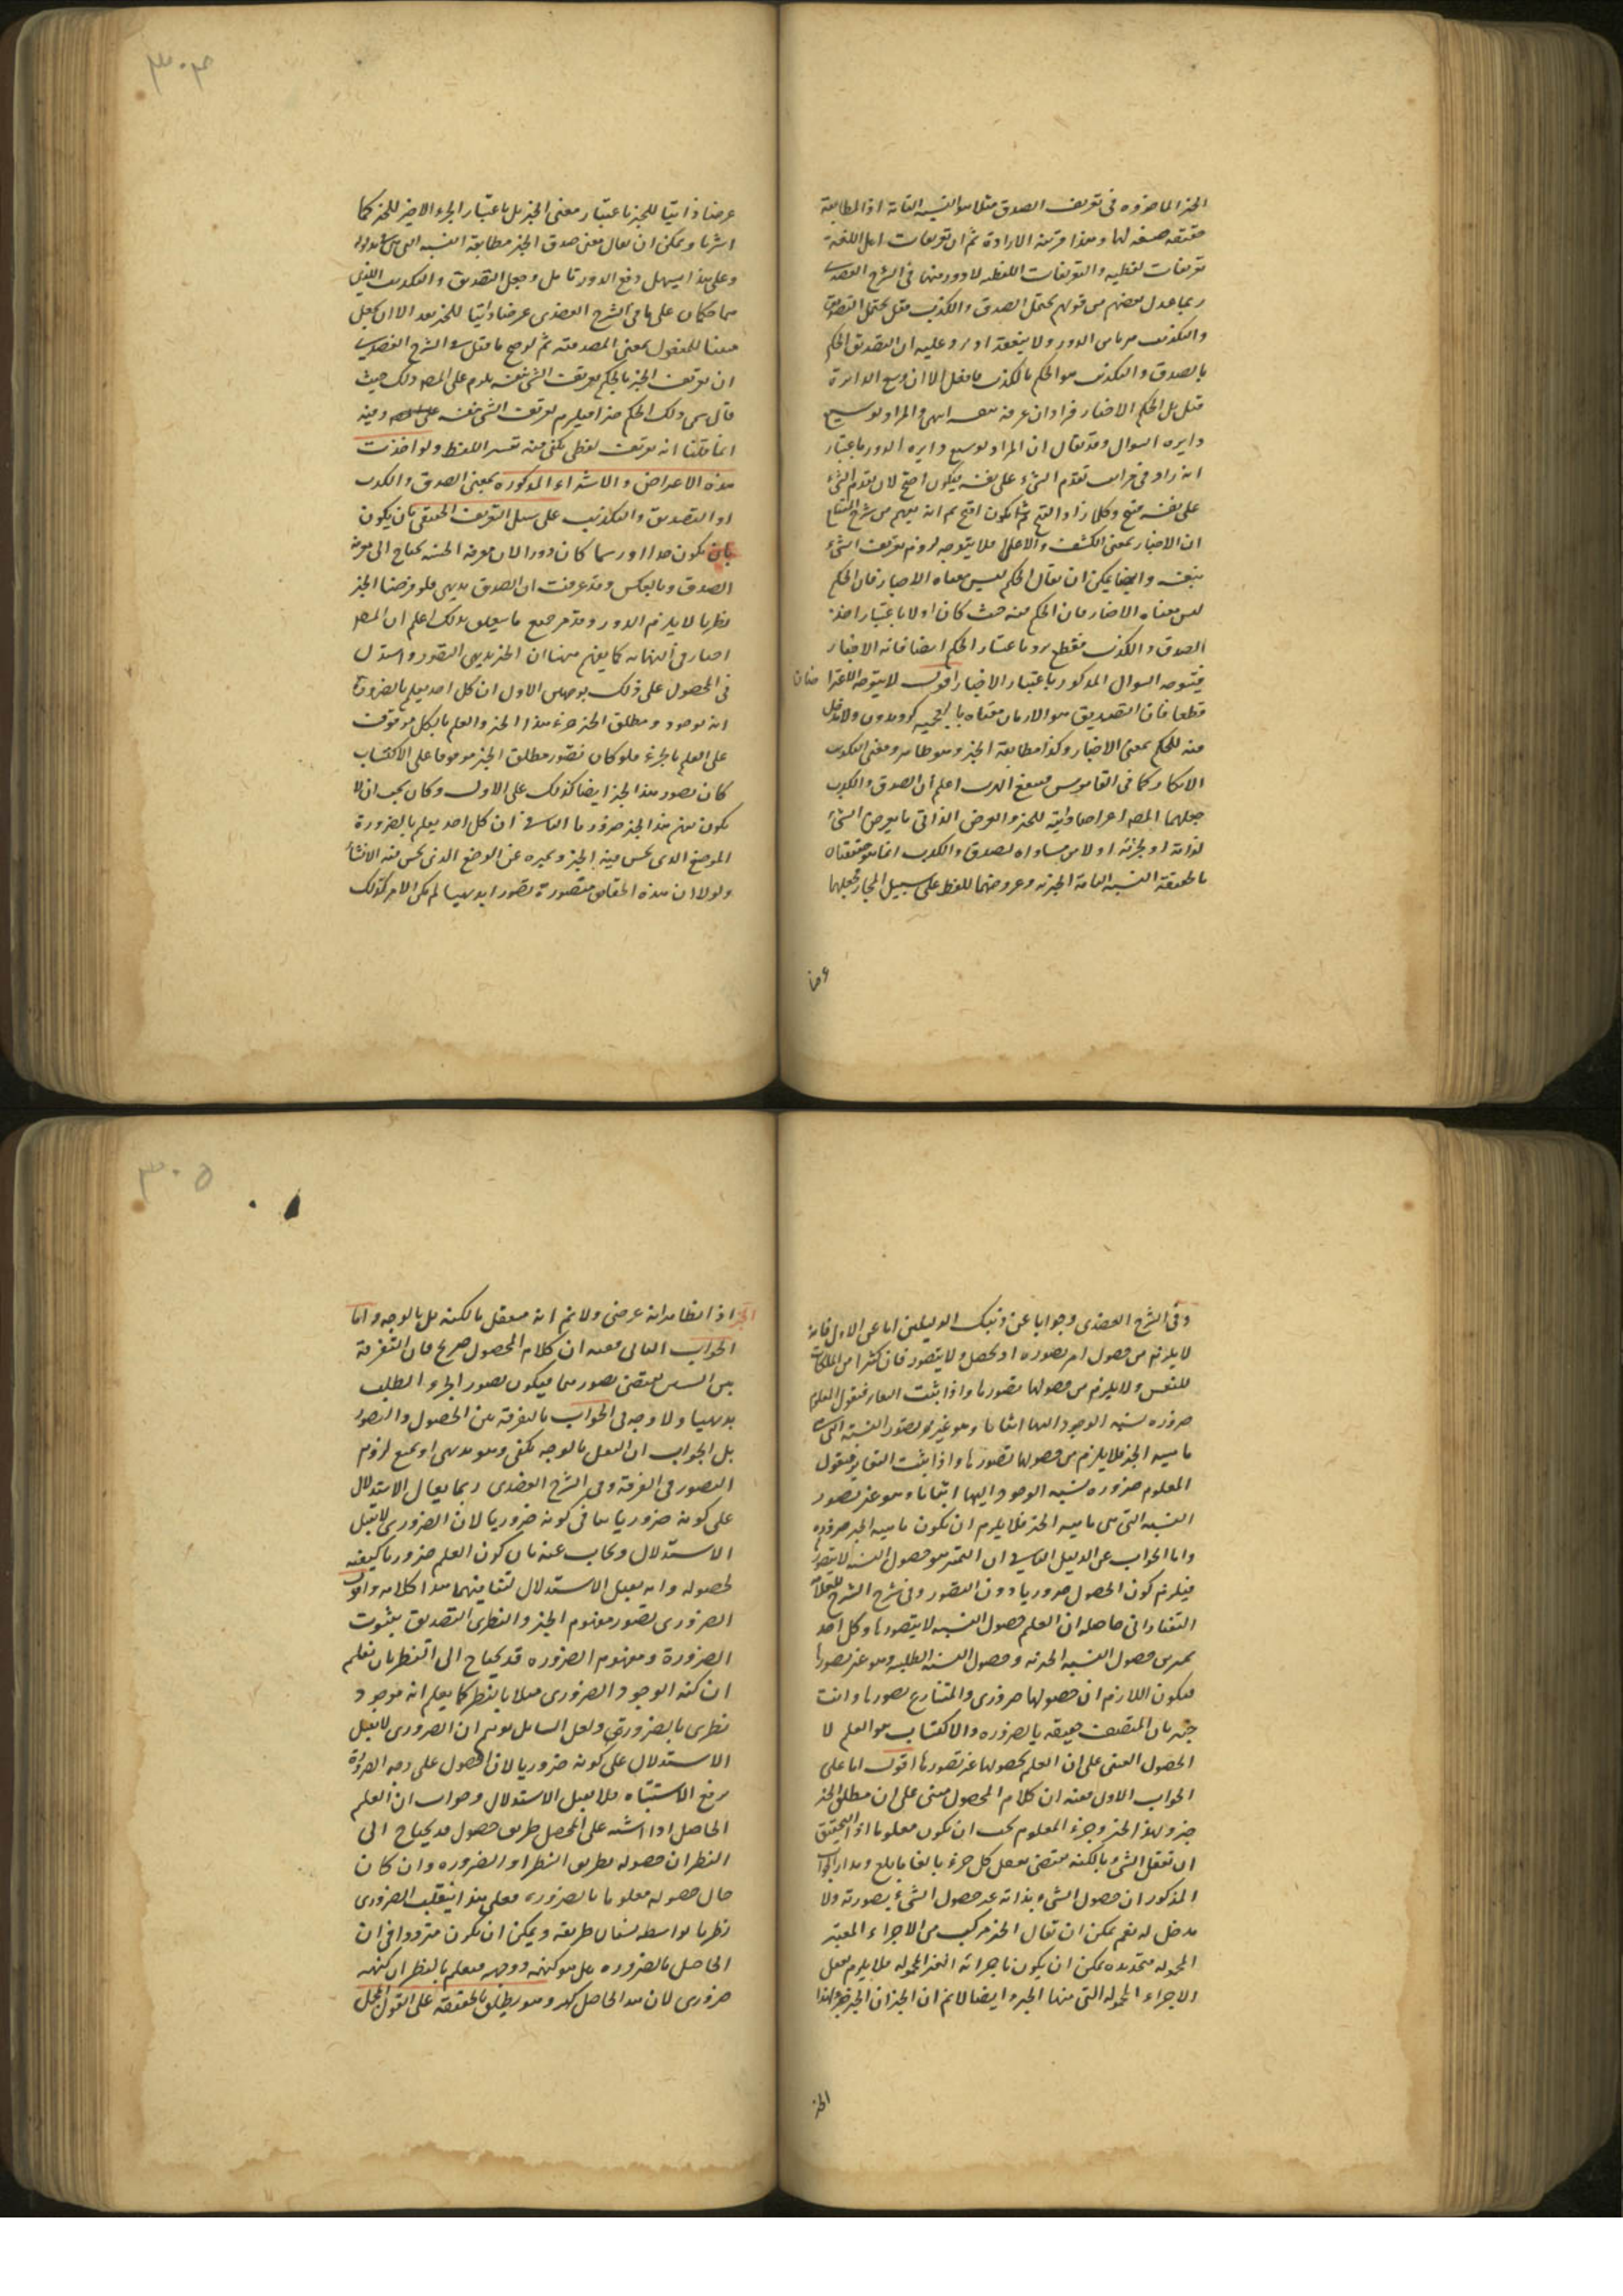 ٣٠٤
الخبر الماخوذه فى تعريف الصدق مثلا هو النسبه التامة اذ المطابقة
حقيقه صفه لها وهذا قرينة الارادة ثم ان تعريفات اهل اللغة
تعريفات لفظيه والتعريفات اللفظيه لا دور فيها فى الشرح العضدى
ربما عدل بعضهم من قولهم يحتمل الصدق والكذب فقيل يحتمل التصديق
والتكذيب هربا من الدور ولا ينفعه اذ يرد عليه ان التصديق الحكم
بالصدق والتكذيب هو الحكم بالكذب فما فعل الا ان وسع الدايرة
قيل بل الحكم الاخبار فزاد ان عرفه بنفسه انتهى والمراد بوسع
دايره السوال وقد يقال ان المراد بوسع دايره الدور باعتبار
انه زاد فى مراتب تقدم الشىء على نفسه فيكون اقبح لان تقدم الشىء
على نفسه قبيح وكلما زاد القبح يكون اقبح ثم انه يفهم من شرح المفتاح
ان الاخبار بمعنى الكشف والاعلام فلا يتوجه لزوم تعريف الشىء
بنفسه وايضا يمكن ان يقال الحكم ليس معناه الاخبار فان الحكم
ليس معناه الاخبار فان الحكم فيه حيث كان اولا باعتبار اخذ
الصدق والكذب فقطع يرد باعتبار الحكم ايضا فانه الاخبار
فيتوجه السوال المذكور باعتبار الاخبار اقول لا يتوجه الاعتراضان
قطعا فان التصديق هو الاذعان معناه بالعجميه كرويدن ولا مدخل
فيه للحكم بمعنى الاخبار وكذا مطابقة الخبر وهو ظاهر ومعنى التكذيب
الانكار كما فى القاموس اعلم ان الصدق والكذب
جعلهما المصـ اعراضا ذاتية للخبر والعرض الذاتى ما يعرض الشىء
لذاته او لجزئه او لامر مساو له الصدق والكذب حقيقتاه
بالحقيقة النسبه التامة الخبريه وعروضهما للفظ على سبيل المجاز فجعلهما
عرضا
عرضا ذاتيا للخبر باعتبار معنى الخبر بل باعتبار الجزء الاخير للخبر كما
اشرنا ويمكن ان يقال معنى صدق الخبر مطابقة النسبه التى هى مدلوله
وعلى هذا يسهل دفع الدور تامل وجعل التصديق والتكذيب اللذين
هما حكمان على ما فى الشرح العضدى عرضا ذاتيا للخبر بعد الا ان يجعل
مبنيا للمفعول بمعنى المصدقيه ثم لو صح ما قيل فى الشرح العضدى
ان تعريف الخبر بالحكم تعريف الشىء بنفسه يلزم على المصـ ذلك حيث
قال سمى ذلك الحكم خبرا فيلزم تعريف الشىء بنفسه وفيه
انما قلنا انه تعريف لفظى يكفى فيه تفسير اللفظ ولو اخذت
هذه الاعراض والاشياء المذكوره بمعنى الصدق والكذب
او التصديق والتكذيب على سبيل التعريف الحقيقى بان يكون
بان يكون حدا او رسما كان دورا لان معرفة الخبر يحتاج الى معرفة
الصدق وبالعكس وقد عرفت ان الصدق بديهى فلو فرضنا الخبر
نظريا لا يلزم الدور وقد مر جميع ما يتعلق بذلك اعلم ان المصـ
اختار فى النهايه كما يفهم ههنا ان الخبر بديهى التصور واستدل
فى المحصول على ذلك بوجهين الاول ان كل احد يعلم بالضرورة
انه موجود ومطلق الخبر جزء هذا الخبر والعلم بالكل موقوف
على العلم بالجزء فلو كان تصور مطلق الخبر موقوفا على الاكتساب
كان تصور هذا الخبر ايضا كذلك على الاول وكان يجب ان لا
يكون فهم هذا الخبر ضروريا الثانى ان كل احد يعلم بالضرورة
الموضع الذى يحسن فيه الخبر ويميزه عن الموضع الذى يحسن فيه الانشا
ولولا ان هذه الحقايق متصورة تصورا بديهيا لم يكن الامر كذلك
٣٠٥
وفى الشرح العضدى وجوابا عن ذينك الدليلين اما عن الاول فانه
لا يلزم من حصول امر تصوره او يحصل ولا يتصور فان كثيرا من الملكات
للنفس ولا يلزم من حصولها تصورها واذا ثبت التغاير فنقول المعلوم
ضروره نسبه الوجود اليها اثباتا وهو غير تصور النسبة التى هى
ماهيه الخبر فلا يلزم من حصولها تصورها واذا ثبت التغاير فنقول
المعلوم ضروره نسبه الوجود اليها اثباتا وهو غير تصور
النسبه التى هى ماهيه الخبر فلا يلزم ان يكون ماهيه الخبر ضروريه
واما الجواب عن الدليل الثانى ان التميز هو حصول النسبه لا تصور
فيلزم كون الحصول ضروريا دون التصور وفى شرح الشرح للعلامة
التفتازانى حاصله ان العلم حصول النسبه لا يتصورها وكل احد
يميز بين حصول النسبه الخبريه وحصول النسبه الطلبيه وهو غير تصورها
فيكون اللازم ان حصولها ضرورى والمتنازع تصورها وانت
خبير بان المتصف حقيقه بالضروره والاكتساب هو العلم لا
الحصول المعنى على ان العلم بحصولها غير تصورها اقول اما على
الجواب الاول ففيه ان كلام المحصول مبنى على ان مطلق الخبر
جزء لهذا الخبر وجزء المعلوم يجب ان يكون معلوما اذ التحقيق
ان تعقل الشىء بالكنه يقتضى تعقل كل جزء بالغا ما بلغ ومدار الجواب
المذكور ان حصول الشىء بذاته غير حصول الشىء بصورته ولا
مدخل له نعم يمكن ان يقال الخبر مركب من الاجزاء المعتبر
المحموله متحديده يمكن ان يكون باجزائه الغير المحموله فلا يلزم تعقل
الاجزاء المحموله التى منها الخبر وايضا لا نم ان الخبر جزء لهذا
الخبر
الخبر اذ الظاهر انه عرضى ولا نم انه متعقل بالكنه بل بالوجه واما
الجواب الثانى ففيه ان كلام المحصول صريح فان التفرقة
بين الشيئين يقتضى تصورهما فيكون تصور الخبر والطلب
بديهيا ولا وجه فى الجواب بالتفرقة بين الحصول والتصور
بل الجواب ان التعقل بالوجه يكفى وهو بديهى او يمنع لزوم
التصور فى التفرقة وفى الشرح العضدى ربما يقال الاستدلال
على كونه ضروريا ينافى كونه ضروريا لان الضرورى لا يقبل
الاستدلال ويجاب عنه بان كون العلم ضروريا كيفيه
لحصوله وانه يقبل الاستدلال لتنافيهما هذا كلامه واقول
الضرورى تصور مفهوم الخبر والنظرى التصديق بثبوت
الضرورة ومفهوم الضروره قد يحتاج الى النظر بان نعلم
ان كنه الوجود الضرورى مثلا بالنظر كما يعلم انه موجود
نظرى بالضرورة ولعل السايل توهم ان الضرورى لا يقبل
الاستدلال على كونه ضروريا لان الحصول على وجه الضرورة
يرفع الاشتباه فلا يقبل الاستدلال وجوابه ان العلم
الحاصل اذا اشتبه على المحصل طريق حصوله قد يحتاج الى
النظر ان حصوله بطريق النظر او الضروره وان كان
حال حصوله معلوما بالضروره فعلى هذا ينقلب الضرورى
نظريا بواسطه نسيان طريقه ويمكن ان يكون مترددا فى ان
الحاصل بالضروره هل هو كنهه او وجهه فيعلم بالنظر ان كنهه
ضرورى لان هذا الحاصل كنهه وهو يطلق بالحقيقة على القول المحتمل